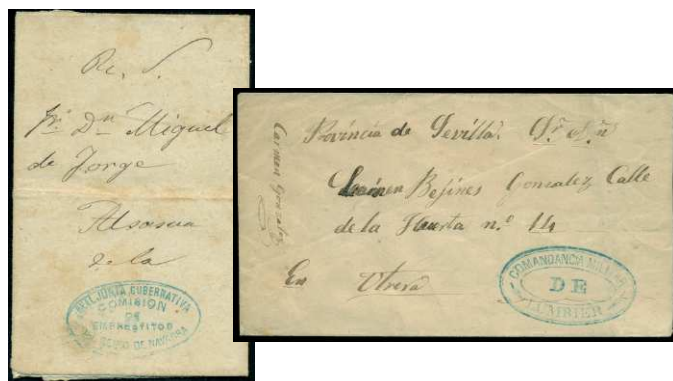 R. S.
Sr. Dn Miguel
de Jorge
Alsasua
REAL JUNTA GUBERNATIVA
COMISION
DE
EMPRESTITOS
DE NAVARRA
Carmen Gonzalez
Provincia de Sevilla. Sr. Dn
Bejines Gonzalez Calle
de la Huerta n.º 14
En Utrera
COMANDANCIA MILITAR
DE
LUMBIER